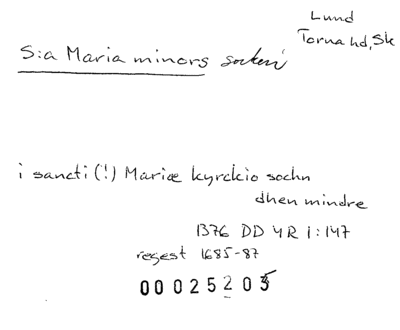 Lund
Torna hd, Sk
S:a Maria minors socken
i sancti (!) Mariæ kyrckio sochn
dhen mindre
1376 DD 4R 1:147
regest 1685-87
00025203